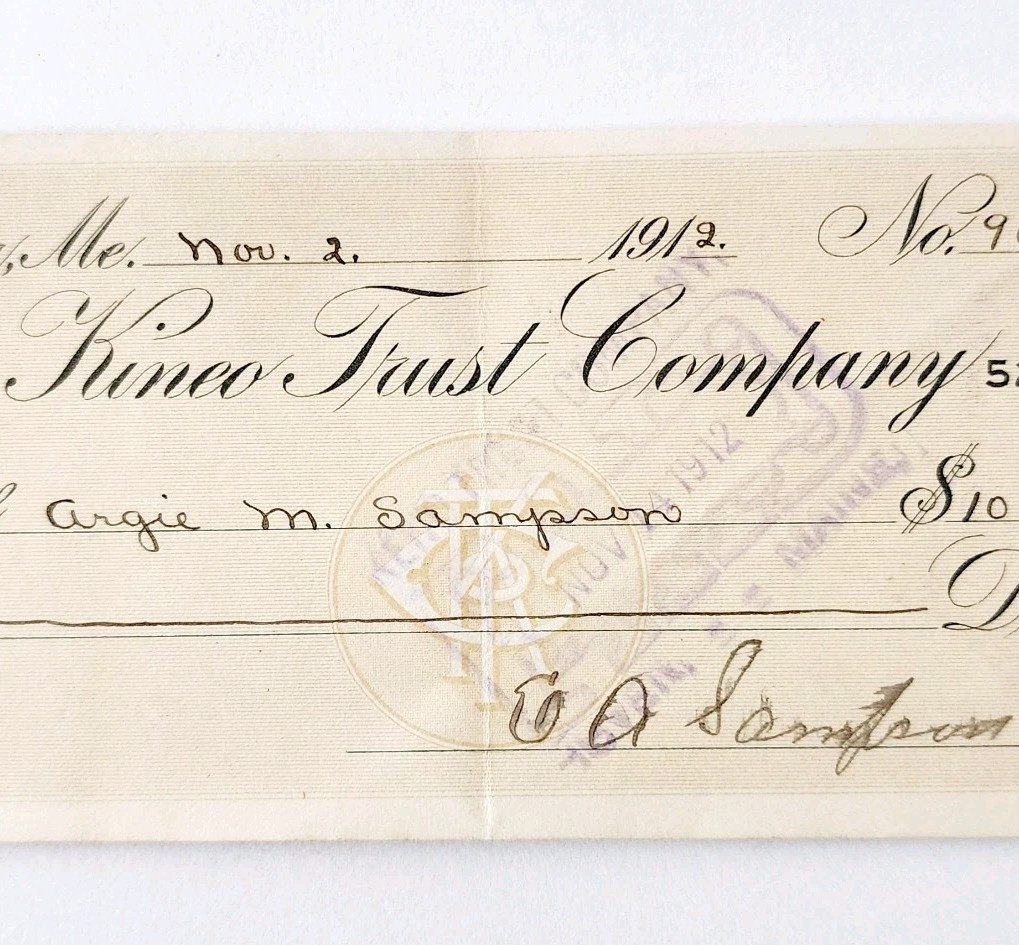 Me. Nov. 2. 1912. No. 9
Kineo Trust Company 52
Argie M. Sampson $10
NOV 4 1912
E A Sampson